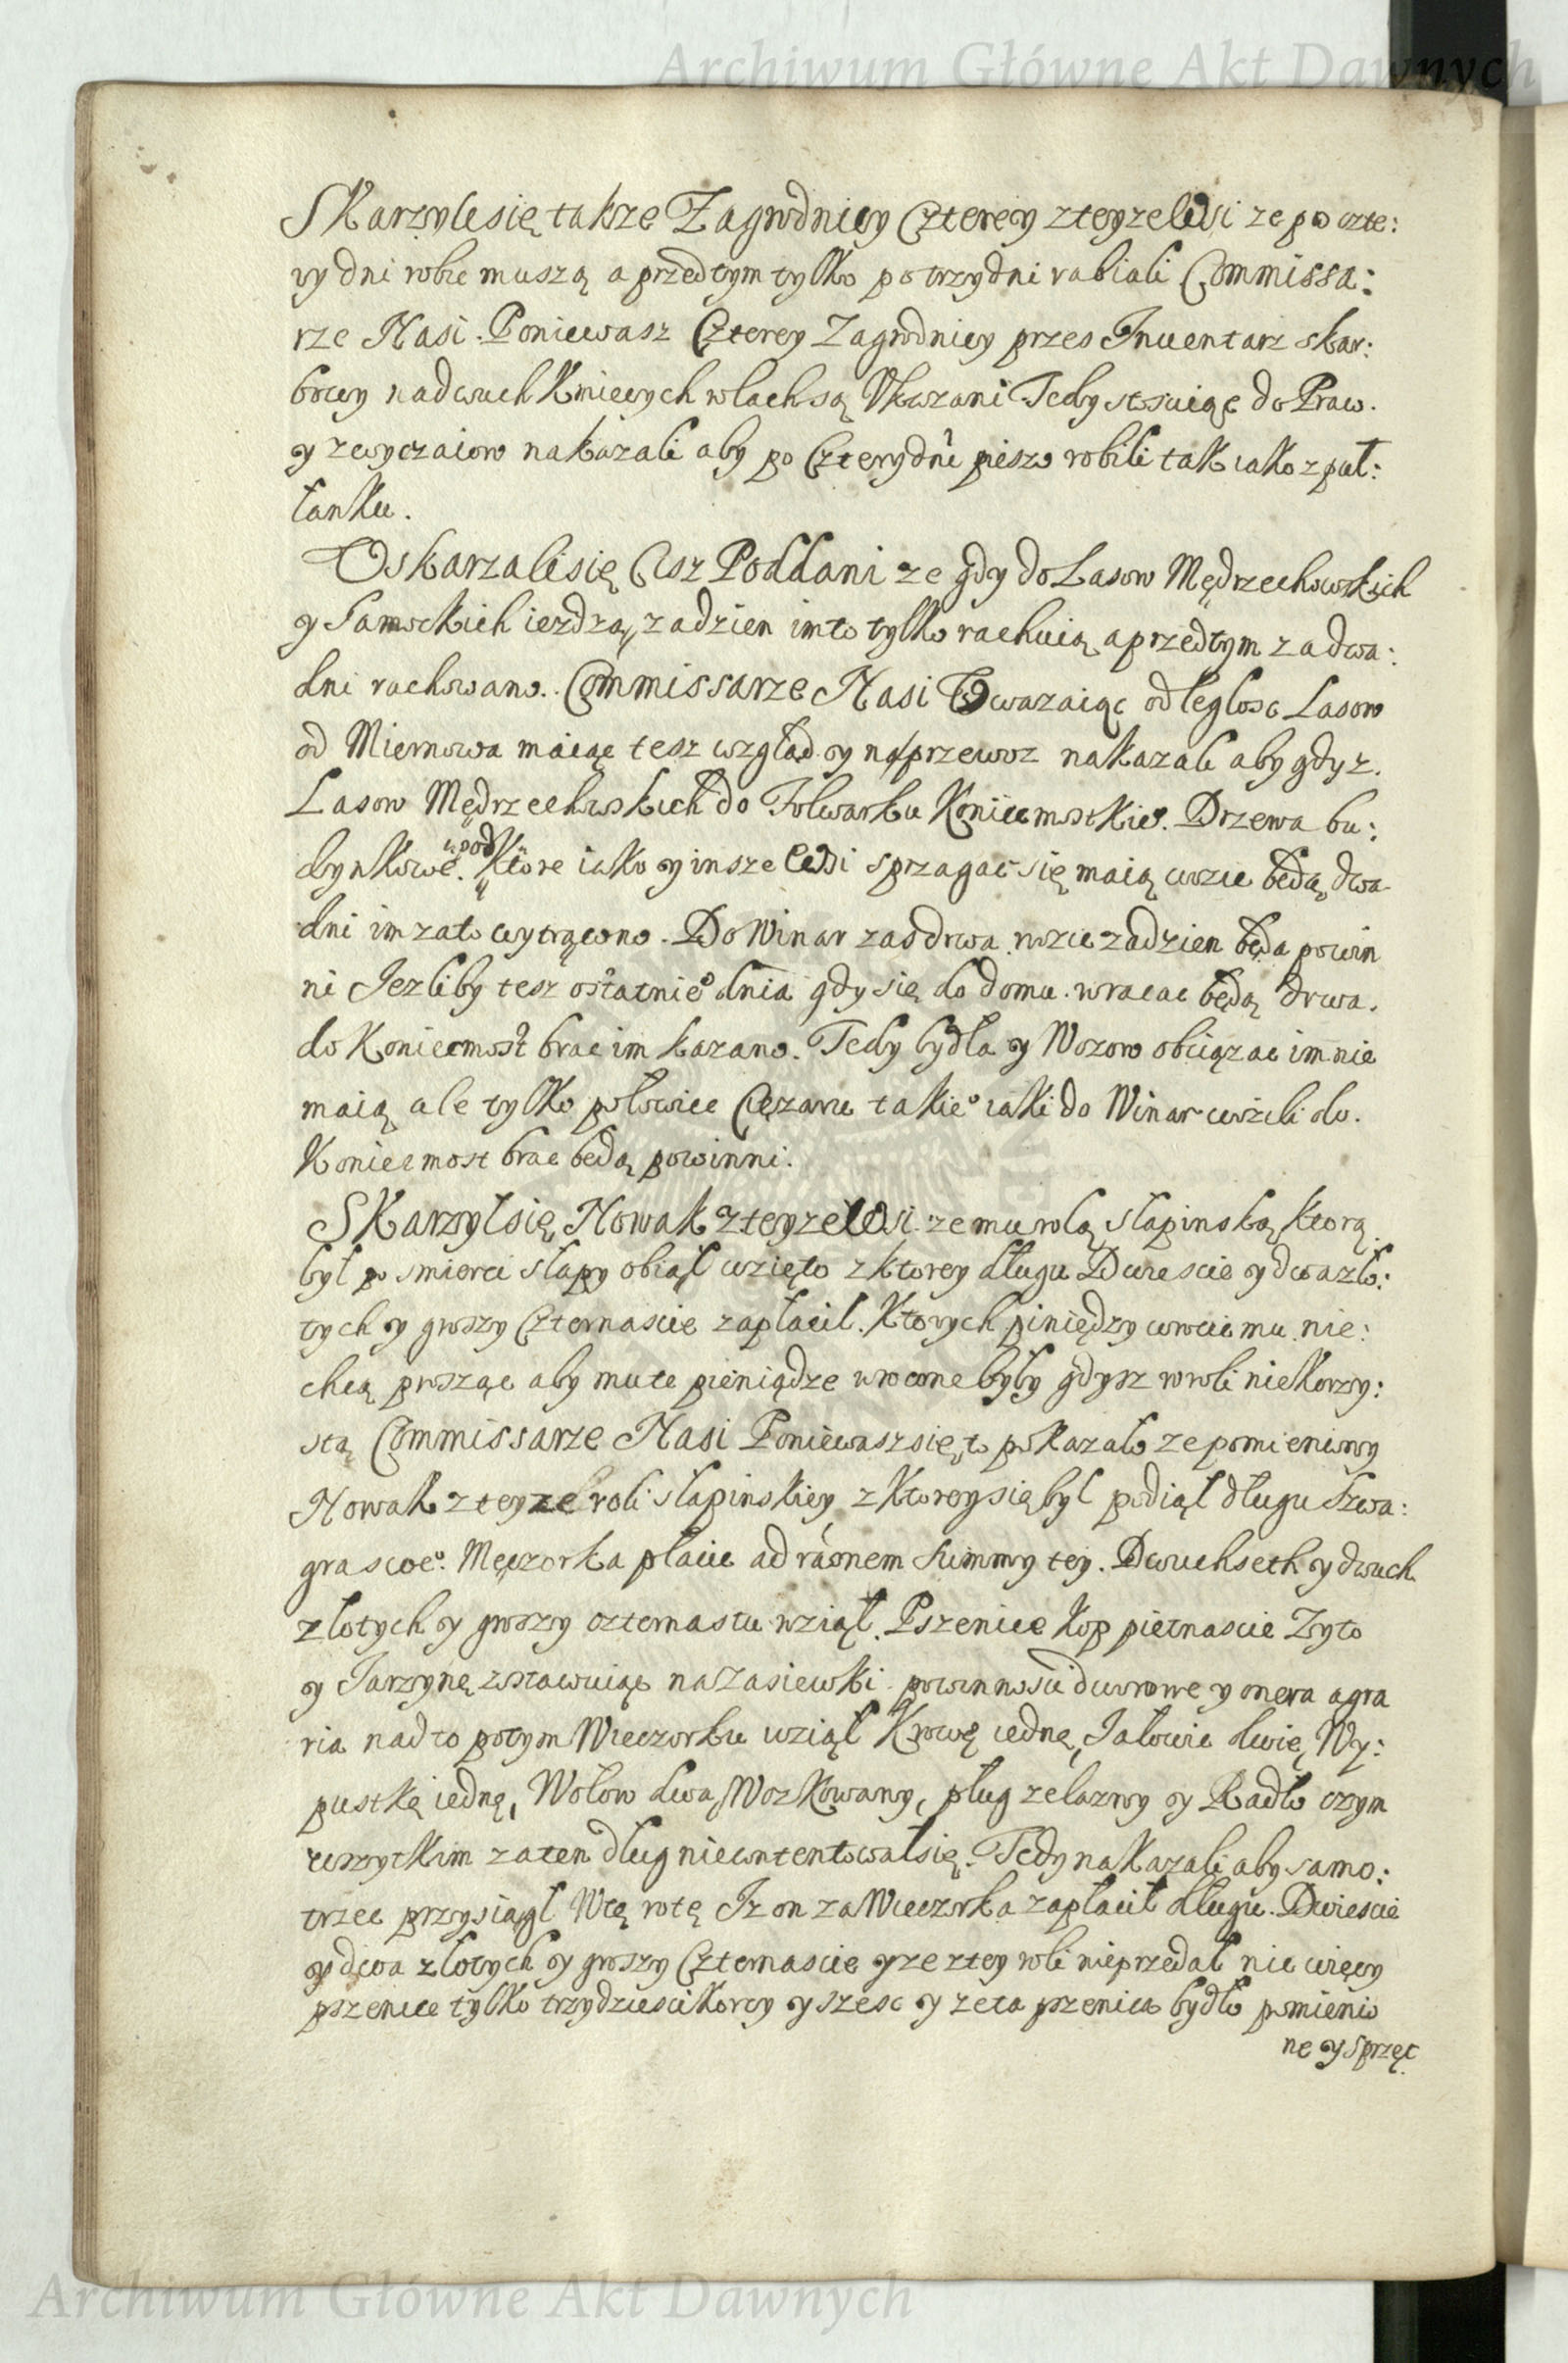 Archiwum Główne Akt Dawnych
Skarzyli się takze Zagrodnicy Czterey z teyze Wsi ze po czte:
ry dni robic muszą a przedtym tylko po trzy dni rabiali Commissa:
rze Nasi. Poniewasz Czterey Zagrodnicy przes Inuentarz skar:
bowy na dwuch Kmiecych rolach są Vkazani Tedy stosuiąc do Praw.
y zwyczaiow nakazali aby po Cztery dni pieszo robili tak iako z puł:
łanku.
Oskarzali się Ciz Poddani ze gdy do Lasow Mędrzechowskich
y Samockich iezdzą, za dzien im to tylko rachuią a przedtym za dwa:
dni rachowano. Commissarze Nasi Vwazaiąc odleglosc Lasow
od Miernowa maiąc tesz wzgląd y na przewoz nakazali aby gdy z.
Lasow Mędrzechowskich do Folwarku Koniecmostkie⁰. Drzewa bu:
dynkowe. w pod Ktore iako y insze Wsi sprzagac się maią wozic będą, dwa
dni im zato wytrącono. Do Winar zas drwa wozic za dzien będą powin
ni Iezliby tesz ostatnie⁰ dnia gdy się do domu wracac będą drwa.
do Koniecmost brac im kazano. Tedy bydła y Wozow obciązac im nie
maią ale tylko połowice Cięzaru takie⁰ iaki do Winar wozili do.
Koniecmost brac będą powinni.
Skarzył się Nowak z teyze Wsi ze mu rolą słapinską ktorą
był po smierci słapy obiął wzięto z ktorey długu Dwiescie y dwa zło:
tych y groszy Czternascie zapłacil. Ktorych piniędzy wrocic mu nie:
chcą prosząc aby mu te pieniądze wrocone były gdysz w roli nie korzy:
sta Commissarze Nasi Poniewasz się to pokazało ze pomieniony
Nowak z teyze roli słapinskiey z Ktorey się był podiął długu szwa:
gra swe⁰. Męczorka płacic ad raonem summy tey. Dwuchseth y dwuch
złotych y groszy czternastu wziął. Pszenice kop piętnascie Zyto
y Iarzynę zostawuiąc na zasiewki powinnosci dworowe y onera agra
ria nad to potym Wieczorku wziął Krowę iedne, Iałowic dwie, Wy:
pustkę iednę, Wołow dwa, Woz Kowany, pług zelazny y Radło czym
wszytkim za ten dług niecontentował się. Tedy nakazali aby samo:
trzec przysiągł W tę rotę Iz on za Wieczorka zapłacił długu. Dwiescie
y dwa złotych y groszy Czternascie y ze z tey roli nieprzedał nic więcy
pszenice tylko trzydziesci korcy y szesc y ze ta pszenica bydło pomienio
ne y sprzęt
Archiwum Główne Akt Dawnych